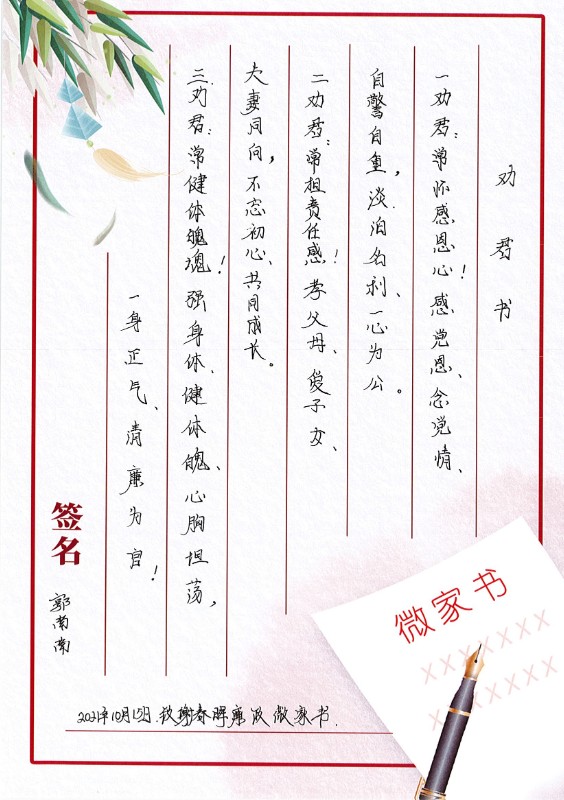 劝君书
一劝君：常怀感恩心！感党恩、念党情、
自警自重，淡泊名利、一心为公。
二劝君：常担责任感！孝父母、爱子女、
夫妻同向，不忘初心、共同成长。
三劝君：常健体魄魂！强身体、健体魄、心胸坦荡，
一身正气、清廉为官！
签名
郭南南
2021年10月15日 致谢春晖廉政微家书.
微家书
XXXXXXX
XXXXXXX